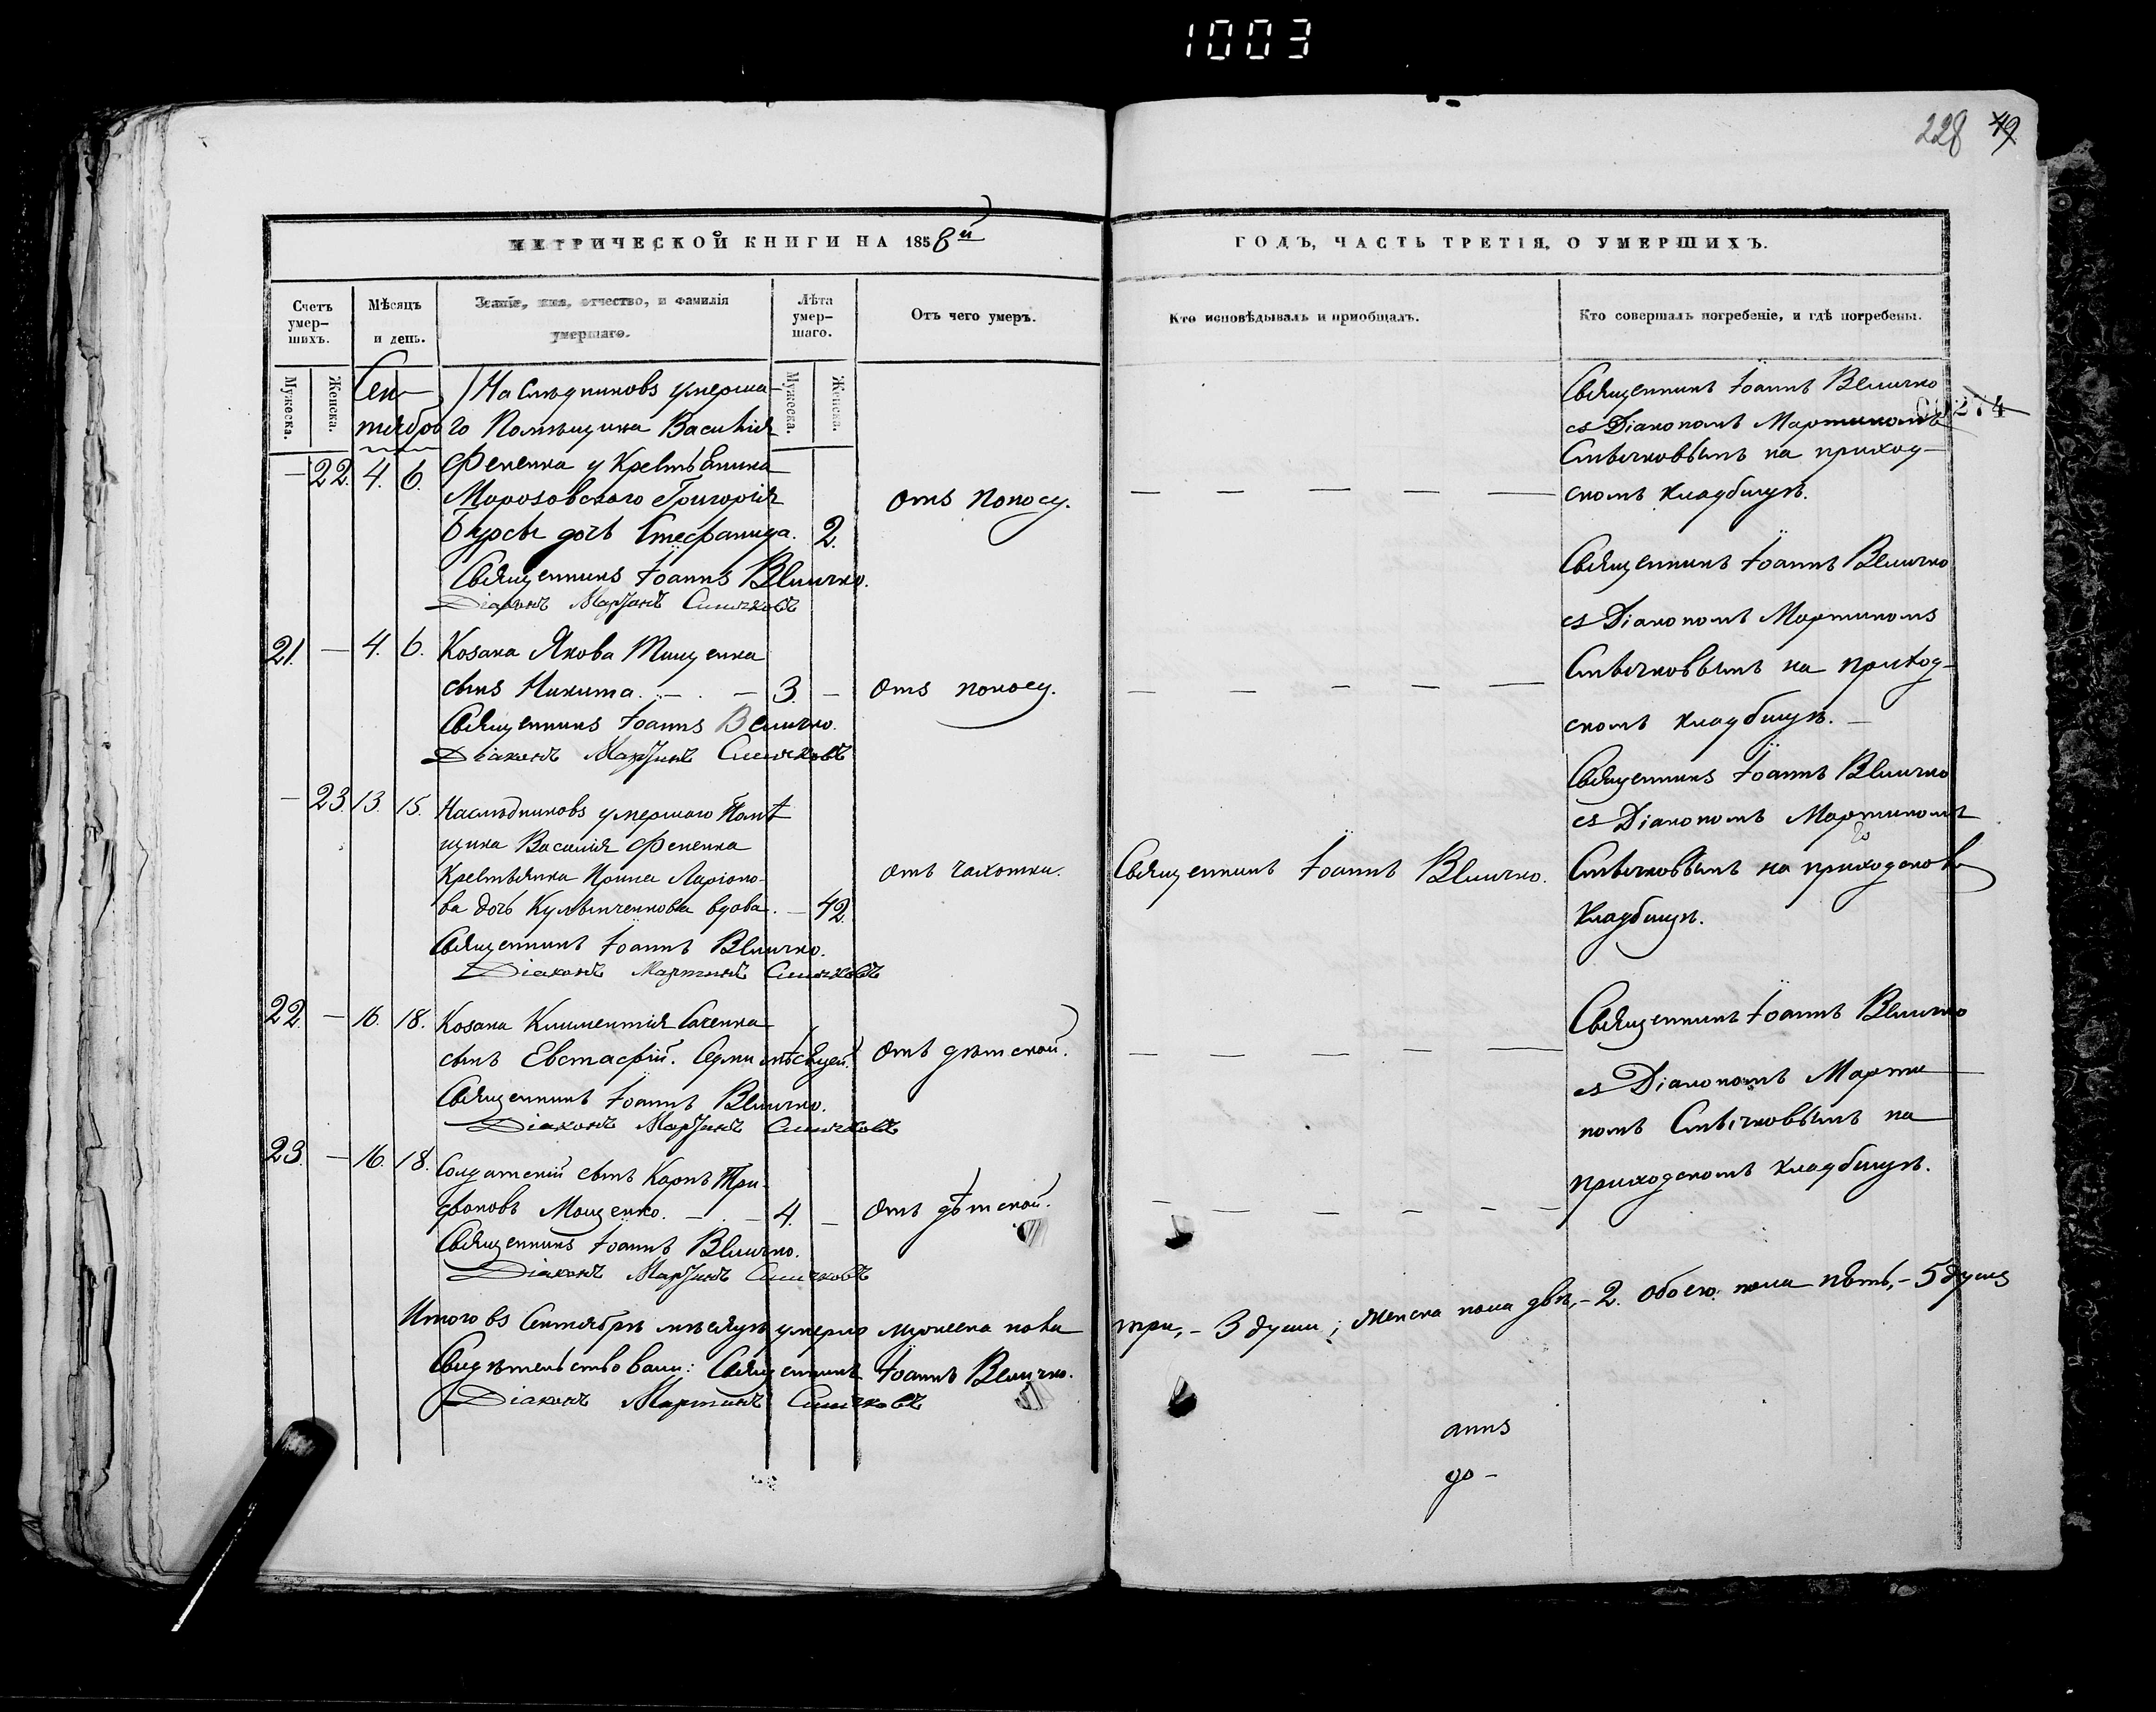 1003
228 49
МЕТРИЧЕСКОЙ КНИГИ НА 1858й
ГОДЪ, ЧАСТЬ ТРЕТІЯ, О УМЕРШИХЪ.
Счетъ умер-
шихъ.
Мѣсяцъ
и день.
Званіе, имя, отчество, и фамилія
умершаго.
Лѣта
умер-
шаго.
Отъ чего умеръ.
Кто исповѣдывалъ и пріобщалъ.
Кто совершалъ погребеніе, и гдѣ погребены.
Мужеска.
Женска.
Мужеска.
Женска.
Сен-
тябрь
Наслѣдниковъ умерша-
го Помѣщика Василія
— 22. 4. 6. Фененка у Крестьянина
Морозовского Григорія
Бурсы дочь Стефанида. 2.
отъ поносу.
Священникъ Іоаннъ Величко.
Діаконъ Мартинъ Синичковъ
Священникъ Іоаннъ Величко
00274
съ Діакономъ Мартиномъ
Синичковымъ на приход-
скомъ кладбищѣ.
21. — 4. 6. Козака Якова Тищенка
сынъ Никита. — 3. —
отъ поносу.
Священникъ Іоаннъ Величко.
Діаконъ Мартинъ Синичковъ
Священникъ Іоаннъ Величко
съ Діакономъ Мартиномъ
Синичковымъ на приход-
скомъ кладбищѣ. —
— 23. 13. 15. Наслѣдниковъ умершаго Помѣ
щика Василія Фененка
Крестьянка Ирина Ларіоно-
ва дочь вдова. — 42.
отъ чахотки.
Священникъ Іоаннъ Величко.
Священникъ Іоаннъ Величко.
Діаконъ Мартинъ Синичковъ
Священникъ Іоаннъ Величко
съ Діакономъ Мартиномъ
Синичковымъ на приходском
кладбищѣ.
22. — 16. 18. Козака Климентія
сынъ Евстафій. Седми мѣсяцей.
отъ дѣтской.
Священникъ Іоаннъ Величко.
Діаконъ Мартинъ Синичковъ
Священникъ Іоаннъ Величко
съ Діакономъ Марти
номъ Синичковымъ на
приходскомъ кладбищѣ.
23. — 16. 18. Солдатскій сынъ Карпъ Три-
фоновъ Мощенко. — 4. —
отъ дѣтской.
Священникъ Іоаннъ Величко.
Діаконъ Мартинъ Синичковъ
Итого въ Сентябрѣ мѣсяцѣ умерло мужеска пола три, — 3 души; женска пола двѣ, — 2. обоего пола пять, — 5 душъ
Свидѣтельствовали: Священникъ Іоаннъ Величко.
Діаконъ Мартинъ Синичковъ
аннъ
до -